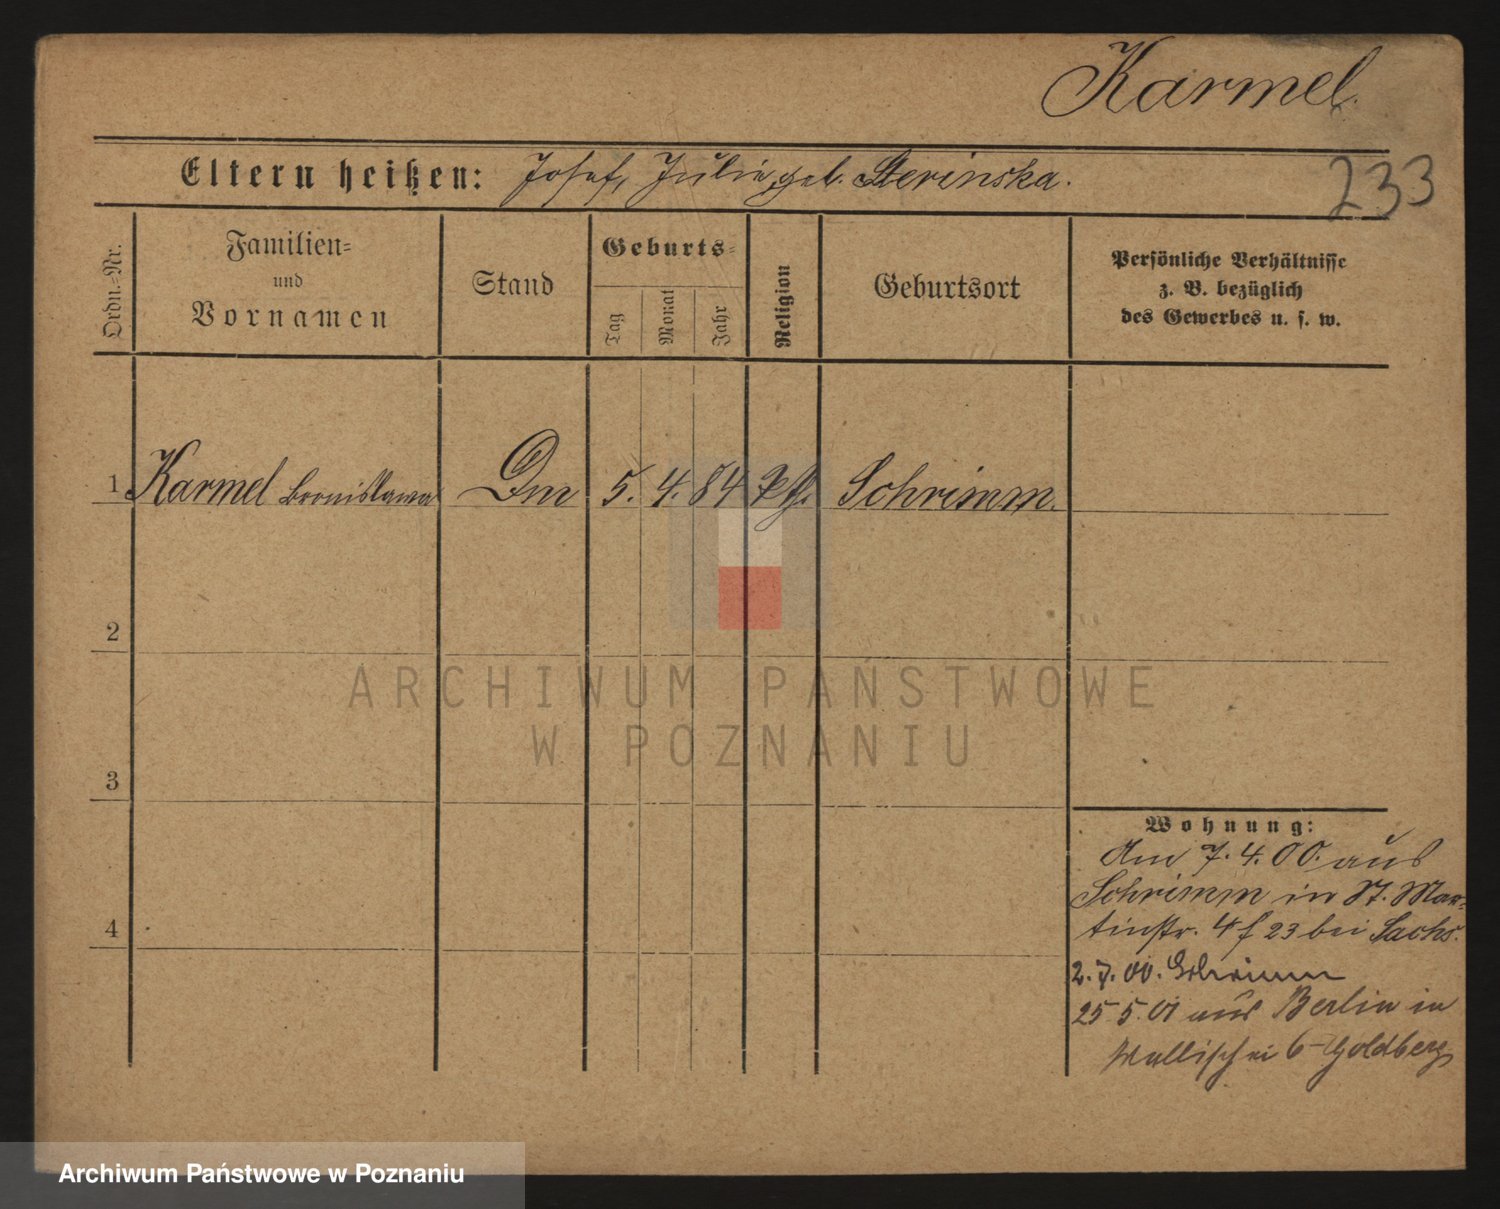 Karmel.
Eltern heißen: Josef, Julie, geb. Sterinska.
233
Ordn.-Nr.
Familien-
und
Vornamen
Stand
Geburts-
Tag
Monat
Jahr
Religion
Geburtsort
Persönliche Verhältnisse
z. B. bezüglich
des Gewerbes u. s. w.
1 Karmel Bronislawa 5. 4. 84 Schrimm.
2
3
4
Wohnung:
Am 7. 4. 00. aus
Schrimm in St. Mar-
tinstr. 23 bei Sachs.
2. 7. 00. Schrimm
25 5. 01 aus Berlin in
Wallischei 6 Goldberg
ARCHIWUM PAŃSTWOWE
W POZNANIU
Archiwum Państwowe w Poznaniu